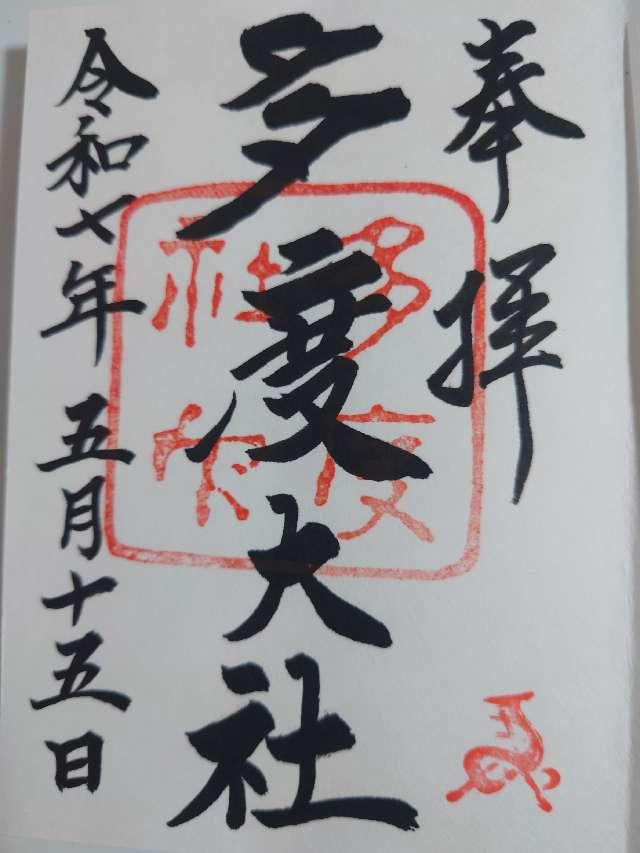 奉拝
多度大社
多度社印
令和七年五月十五日